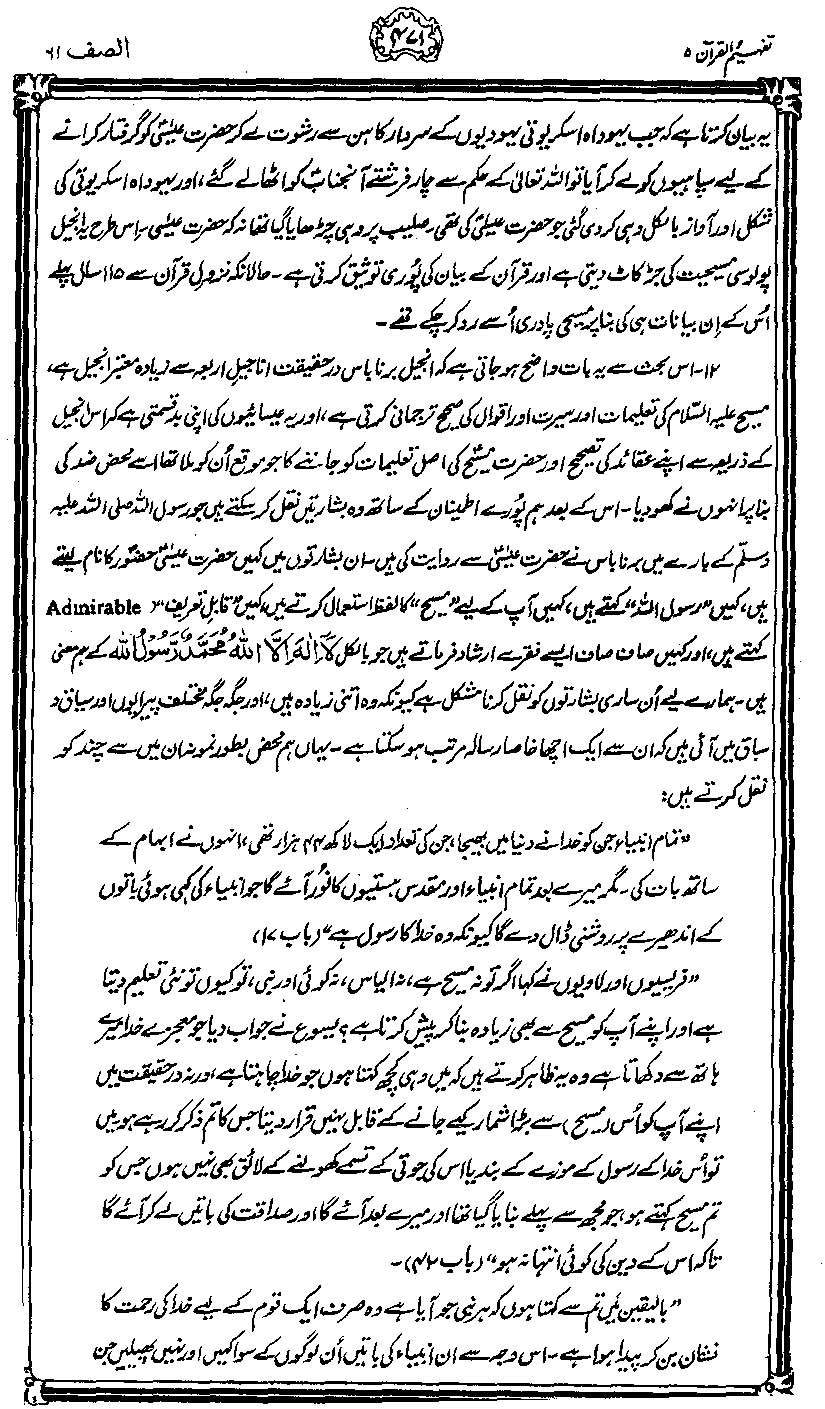 تفہیم القرآن ۵
۴۷۱
الصف ۶۱
یہ بیان کرتا ہے کہ جب یہوداہ اسکریوتی یہودیوں کے سردار کاہن سے رشوت لے کر حضرت عیسیٰؑ کو گرفتار کرانے
کے لیے سپاہیوں کو لے کر آیا تو اللہ تعالیٰ کے حکم سے چار فرشتے آنجنابؑ کو اٹھا لے گئے، اور یہوداہ اسکریوتی کی
شکل اور آواز بالکل وہی کر دی گئی جو حضرت عیسیٰؑ کی تھی۔ صلیب پر وہی چڑھایا گیا تھا نہ کہ حضرت عیسیٰؑ۔ اس طرح یہ انجیل
پولوسی مسیحیت کی جڑ کاٹ دیتی ہے اور قرآن کے بیان کی پُوری توثیق کرتی ہے۔ حالانکہ نزولِ قرآن سے ۱۱۵ سال پہلے
اُس کے اِن بیانات ہی کی بنا پر مسیحی پادری اُسے رد کر چکے تھے۔
۱۲۔ اس بحث سے یہ بات واضح ہو جاتی ہے کہ انجیل برناباس درحقیقت اناجیل اربعہ سے زیادہ معتبر انجیل ہے،
مسیح علیہ السّلام کی تعلیمات اور سیرت اور اقوال کی صحیح ترجمانی کرتی ہے، اور یہ عیسائیوں کی اپنی بدقسمتی ہے کہ اس انجیل
کے ذریعہ سے اپنے عقائد کی تصحیح اور حضرت مسیحؑ کی اصل تعلیمات کو جاننے کا جو موقع اُن کو ملا تھا اسے محض ضد کی
بنا پر انہوں نے کھو دیا۔ اس کے بعد ہم پُورے اطمینان کے ساتھ وہ بشارتیں نقل کر سکتے ہیں جو رسول اللہ صلی اللہ علیہ
وسلّم کے بارے میں برناباس نے حضرت عیسیٰؑ سے روایت کی ہیں۔ ان بشارتوں میں کہیں حضرت عیسیٰؑ حضورؐ کا نام لیتے
ہیں، کہیں "رسول اللہ" کہتے ہیں، کہیں آپ کے لیے "مسیح" کا لفظ استعمال کرتے ہیں، کہیں "قابلِ تعریف" (Admirable
کہتے ہیں، اور کہیں صاف صاف ایسے فقرے ارشاد فرماتے ہیں جو بالکل لَآ اِلٰہَ اِلَّا اللّٰہُ مُحَمَّدٌ رَّسُوْلُ اللّٰہ کے ہم معنی
ہیں۔ ہمارے لیے اُن ساری بشارتوں کو نقل کرنا مشکل ہے کیونکہ وہ اتنی زیادہ ہیں، اور جگہ جگہ مختلف پیرایوں اور سیاق و
سباق میں آئی ہیں کہ ان سے ایک اچھا خاصا رسالہ مرتب ہو سکتا ہے۔ یہاں ہم محض بطور نمونہ ان میں سے چند کو
نقل کرتے ہیں:
"تمام انبیاء جن کو خدا نے دنیا میں بھیجا، جن کی تعداد ایک لاکھ ۴۴ ہزار تھی، انہوں نے ابہام کے
ساتھ بات کی۔ مگر میرے بعد تمام انبیاء اور مقدس ہستیوں کا نُور آئے گا جو انبیاء کی کہی ہوئی باتوں
کے اندھیرے پر روشنی ڈال دے گا کیونکہ وہ خدا کا رسول ہے" (باب ۱۷)
"فریسیوں اور لاویوں نے کہا اگر تو نہ مسیح ہے، نہ الیاس، نہ کوئی اور نبی، تو کیوں تو نئی تعلیم دیتا
ہے اور اپنے آپ کو مسیح سے بھی زیادہ بنا کر پیش کرتا ہے؟ یسوع نے جواب دیا جو معجزے خدا میرے
ہاتھ سے دکھاتا ہے وہ یہ ظاہر کرتے ہیں کہ میں وہی کچھ کہتا ہوں جو خدا چاہتا ہے، ورنہ درحقیقت میں
اپنے آپ کو اُس (مسیح) سے بڑا شمار کیے جانے کے قابل نہیں قرار دیتا جس کا تم ذکر کر رہے ہو۔ میں
تو اُس خدا کے رسول کے موزے کے بند یا اس کی جوتی کے تسمے کھولنے کے لائق بھی نہیں ہوں جس کو
تم مسیح کہتے ہو، جو مجھ سے پہلے بنایا گیا تھا اور میرے بعد آئے گا اور صداقت کی باتیں لے کر آئے گا
تاکہ اس کے دین کی کوئی انتہا نہ ہو" (باب ۴۲)۔
"بالیقین میں تم سے کہتا ہوں کہ ہر نبی جو آیا ہے وہ صرف ایک قوم کے لیے خدا کی رحمت کا
نشان بن کر پیدا ہوا ہے۔ اس وجہ سے ان انبیاء کی باتیں اُن لوگوں کے سوا کہیں اور نہیں پھیلیں جن